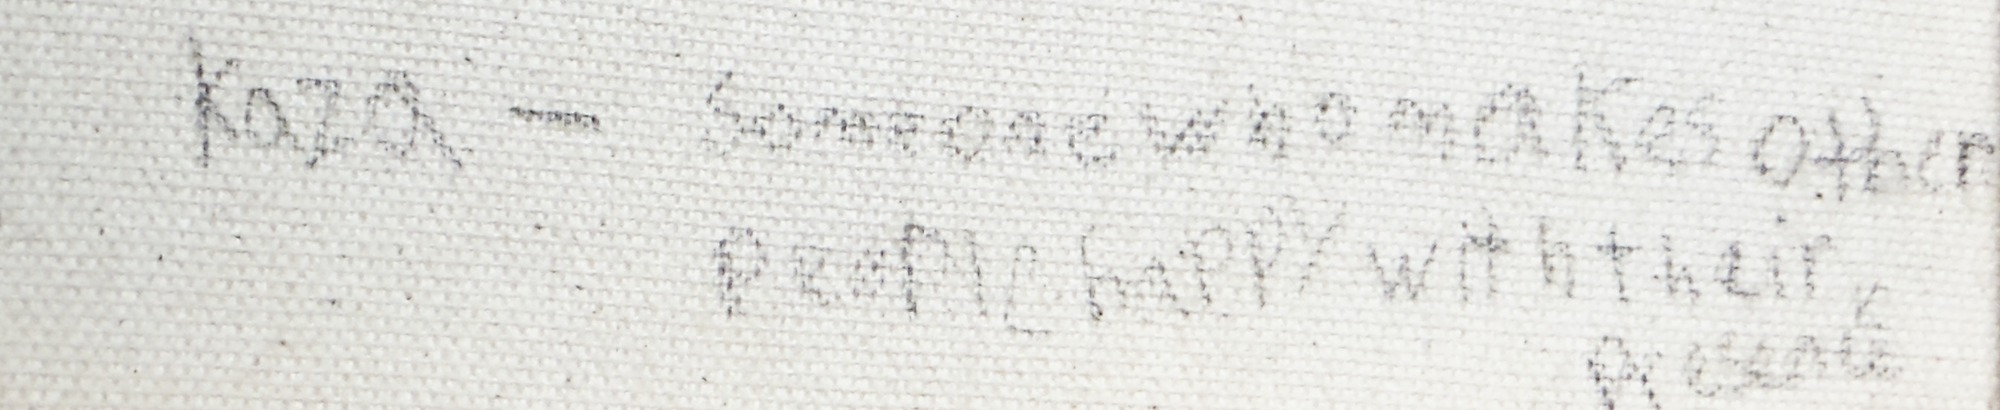 Kaza — Someone who makes other
people happy with their
presents